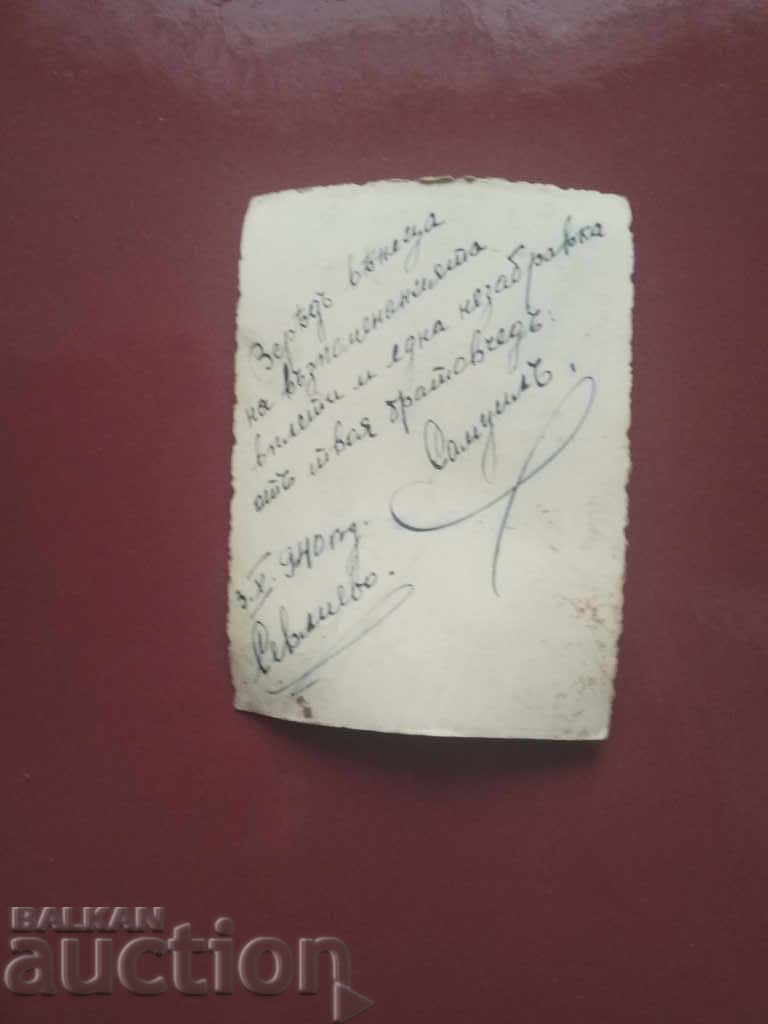 Зарѣдъ вѣнеца
на възпоменанията
вплети и една незабравка
отъ твоя братовчедъ:
Самуилъ.
3.X.940 год.
Севлиево.
BALKAN
auction